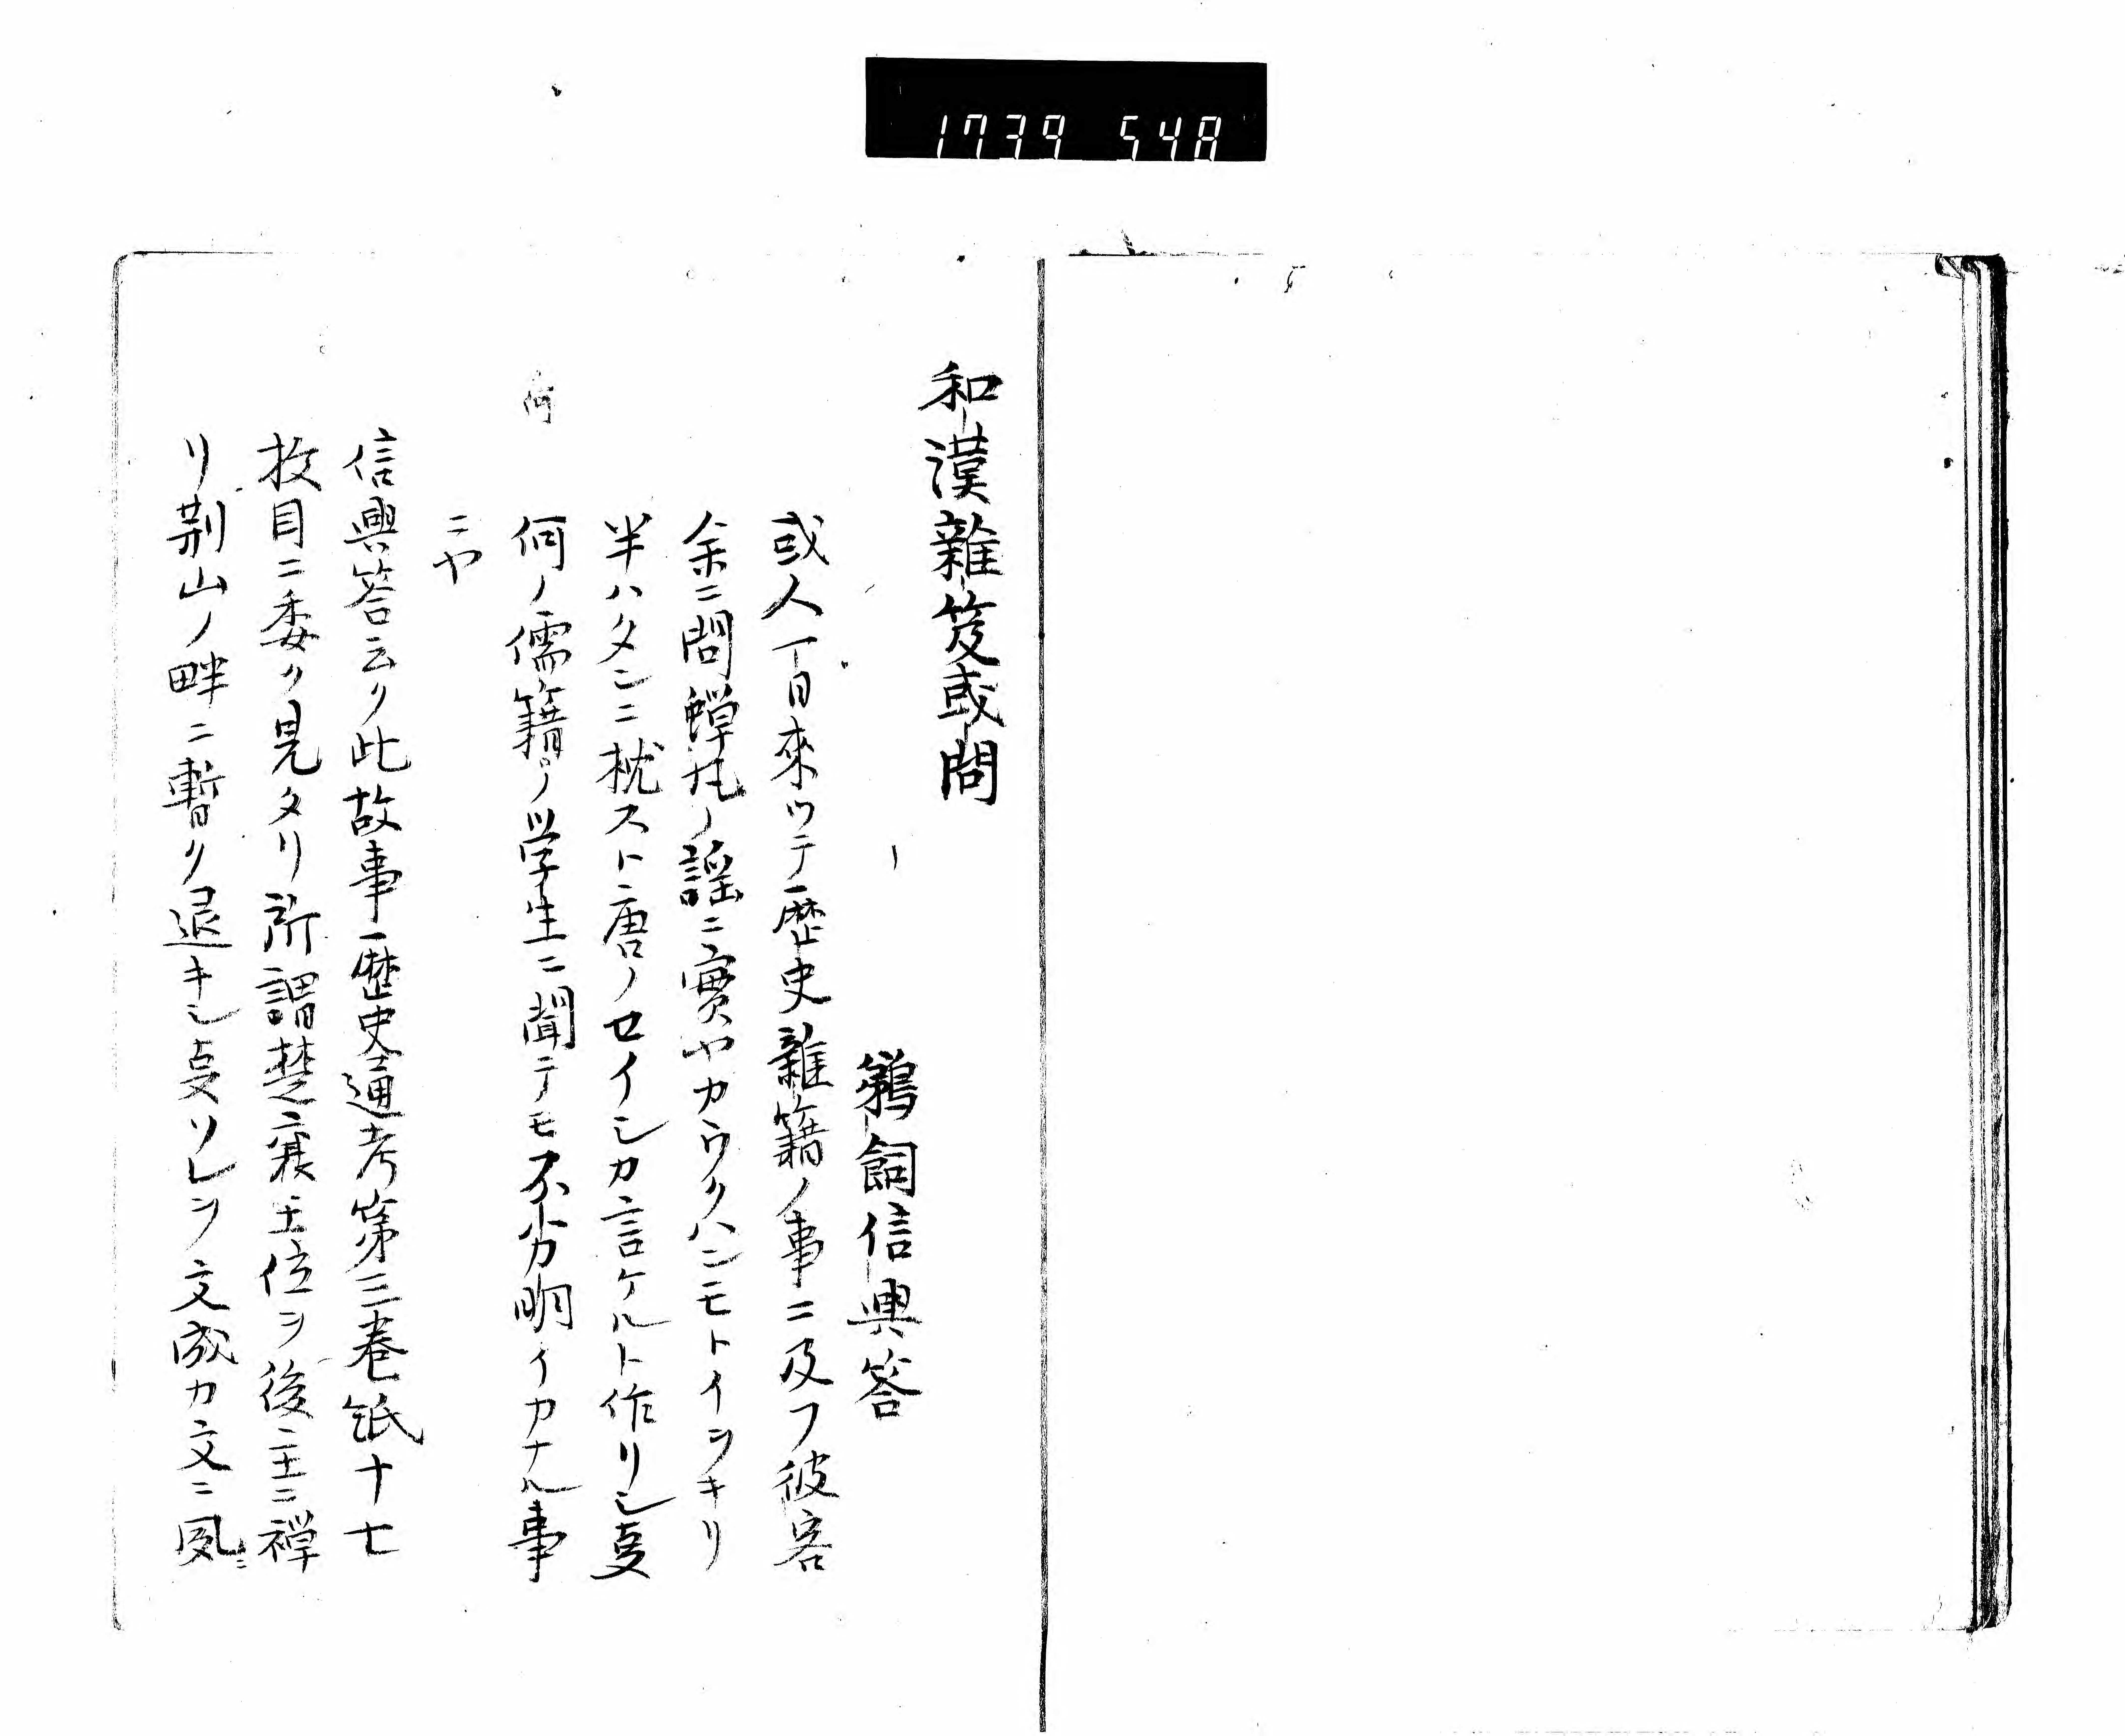 1739 548
和漢雜笈或問
鵜飼信興答
或人一日來ツテ歴史雜籍ノ事ニ及フ彼客
余ニ問蟬丸ノ謡ニ實ヤカウクハンモトイヲキリ
半ハタンニ枕スト唐ノセイシカ言ケルト作リシ㕝
何
何ノ儒籍ノ学生ニ聞テモ不分明イカナル事
ニヤ
信興答云ク此故事歴史通考第三巻紙十七
枚目ニ委ク見タリ所謂楚襄王位ヲ後主ニ禅
リ荆山ノ畔ニ暫ク退キシ㕝ソレヲ文成カ文ニ